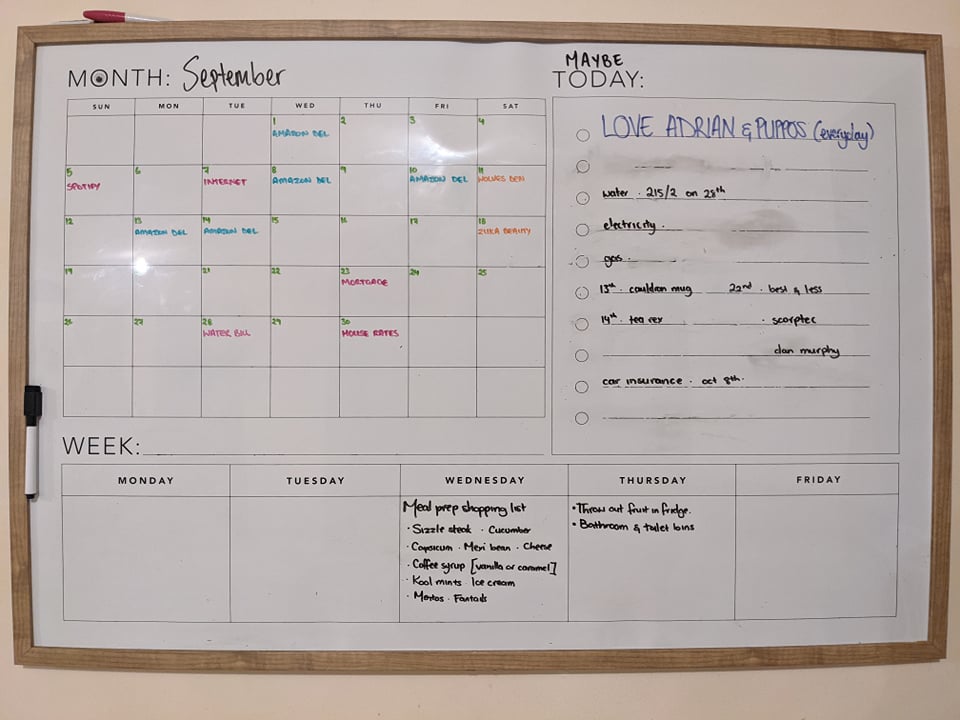 MONTH: September
SUN MON TUE WED THU FRI SAT
1 2 3 4
AMAZON DEL
5 6 7 8 9 10 11
SPOTIFY INTERNET AMAZON DEL AMAZON DEL WOLVES DEN
12 13 14 15 16 17 18
AMAZON DEL AMAZON DEL ZIIKA BEAUTY
19 21 22 23 24 25
MORTGAGE
26 27 28 29 30
WATER BILL HOUSE RATES
MAYBE
TODAY:
LOVE ADRIAN & PUPPOS (everyday)
water · 215/2 on 28th
electricity ·
gas ·
13th · cauldron mug 22nd · best & less
14th · tea rex · scorptec
dan murphy
car insurance · oct 8th ·
WEEK:
MONDAY TUESDAY WEDNESDAY THURSDAY FRIDAY
Meal prep shopping list
· Sizzle steak · Cucumber
· Capsicum · Mexi bean · Cheese
· Coffee syrup [vanilla or caramel]
· Kool mints · Ice cream
· Mentos · Fantails
· Throw out fruit in fridge.
· Bathroom & toilet bins